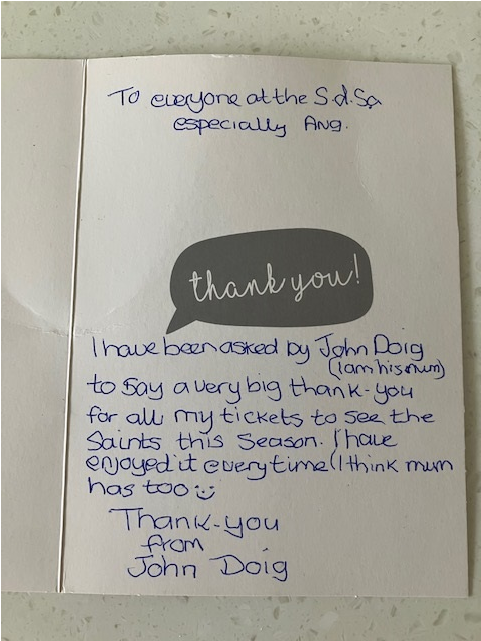 To everyone at the S.d.Sa
especially Ang.
thank you!
I have been asked by John Doig
(I am his mum)
to say a very big thank-you
for all my tickets to see the
Saints this Season. I have
enjoyed it every time (I think mum
has too ☺
Thank-you
from
John Doig